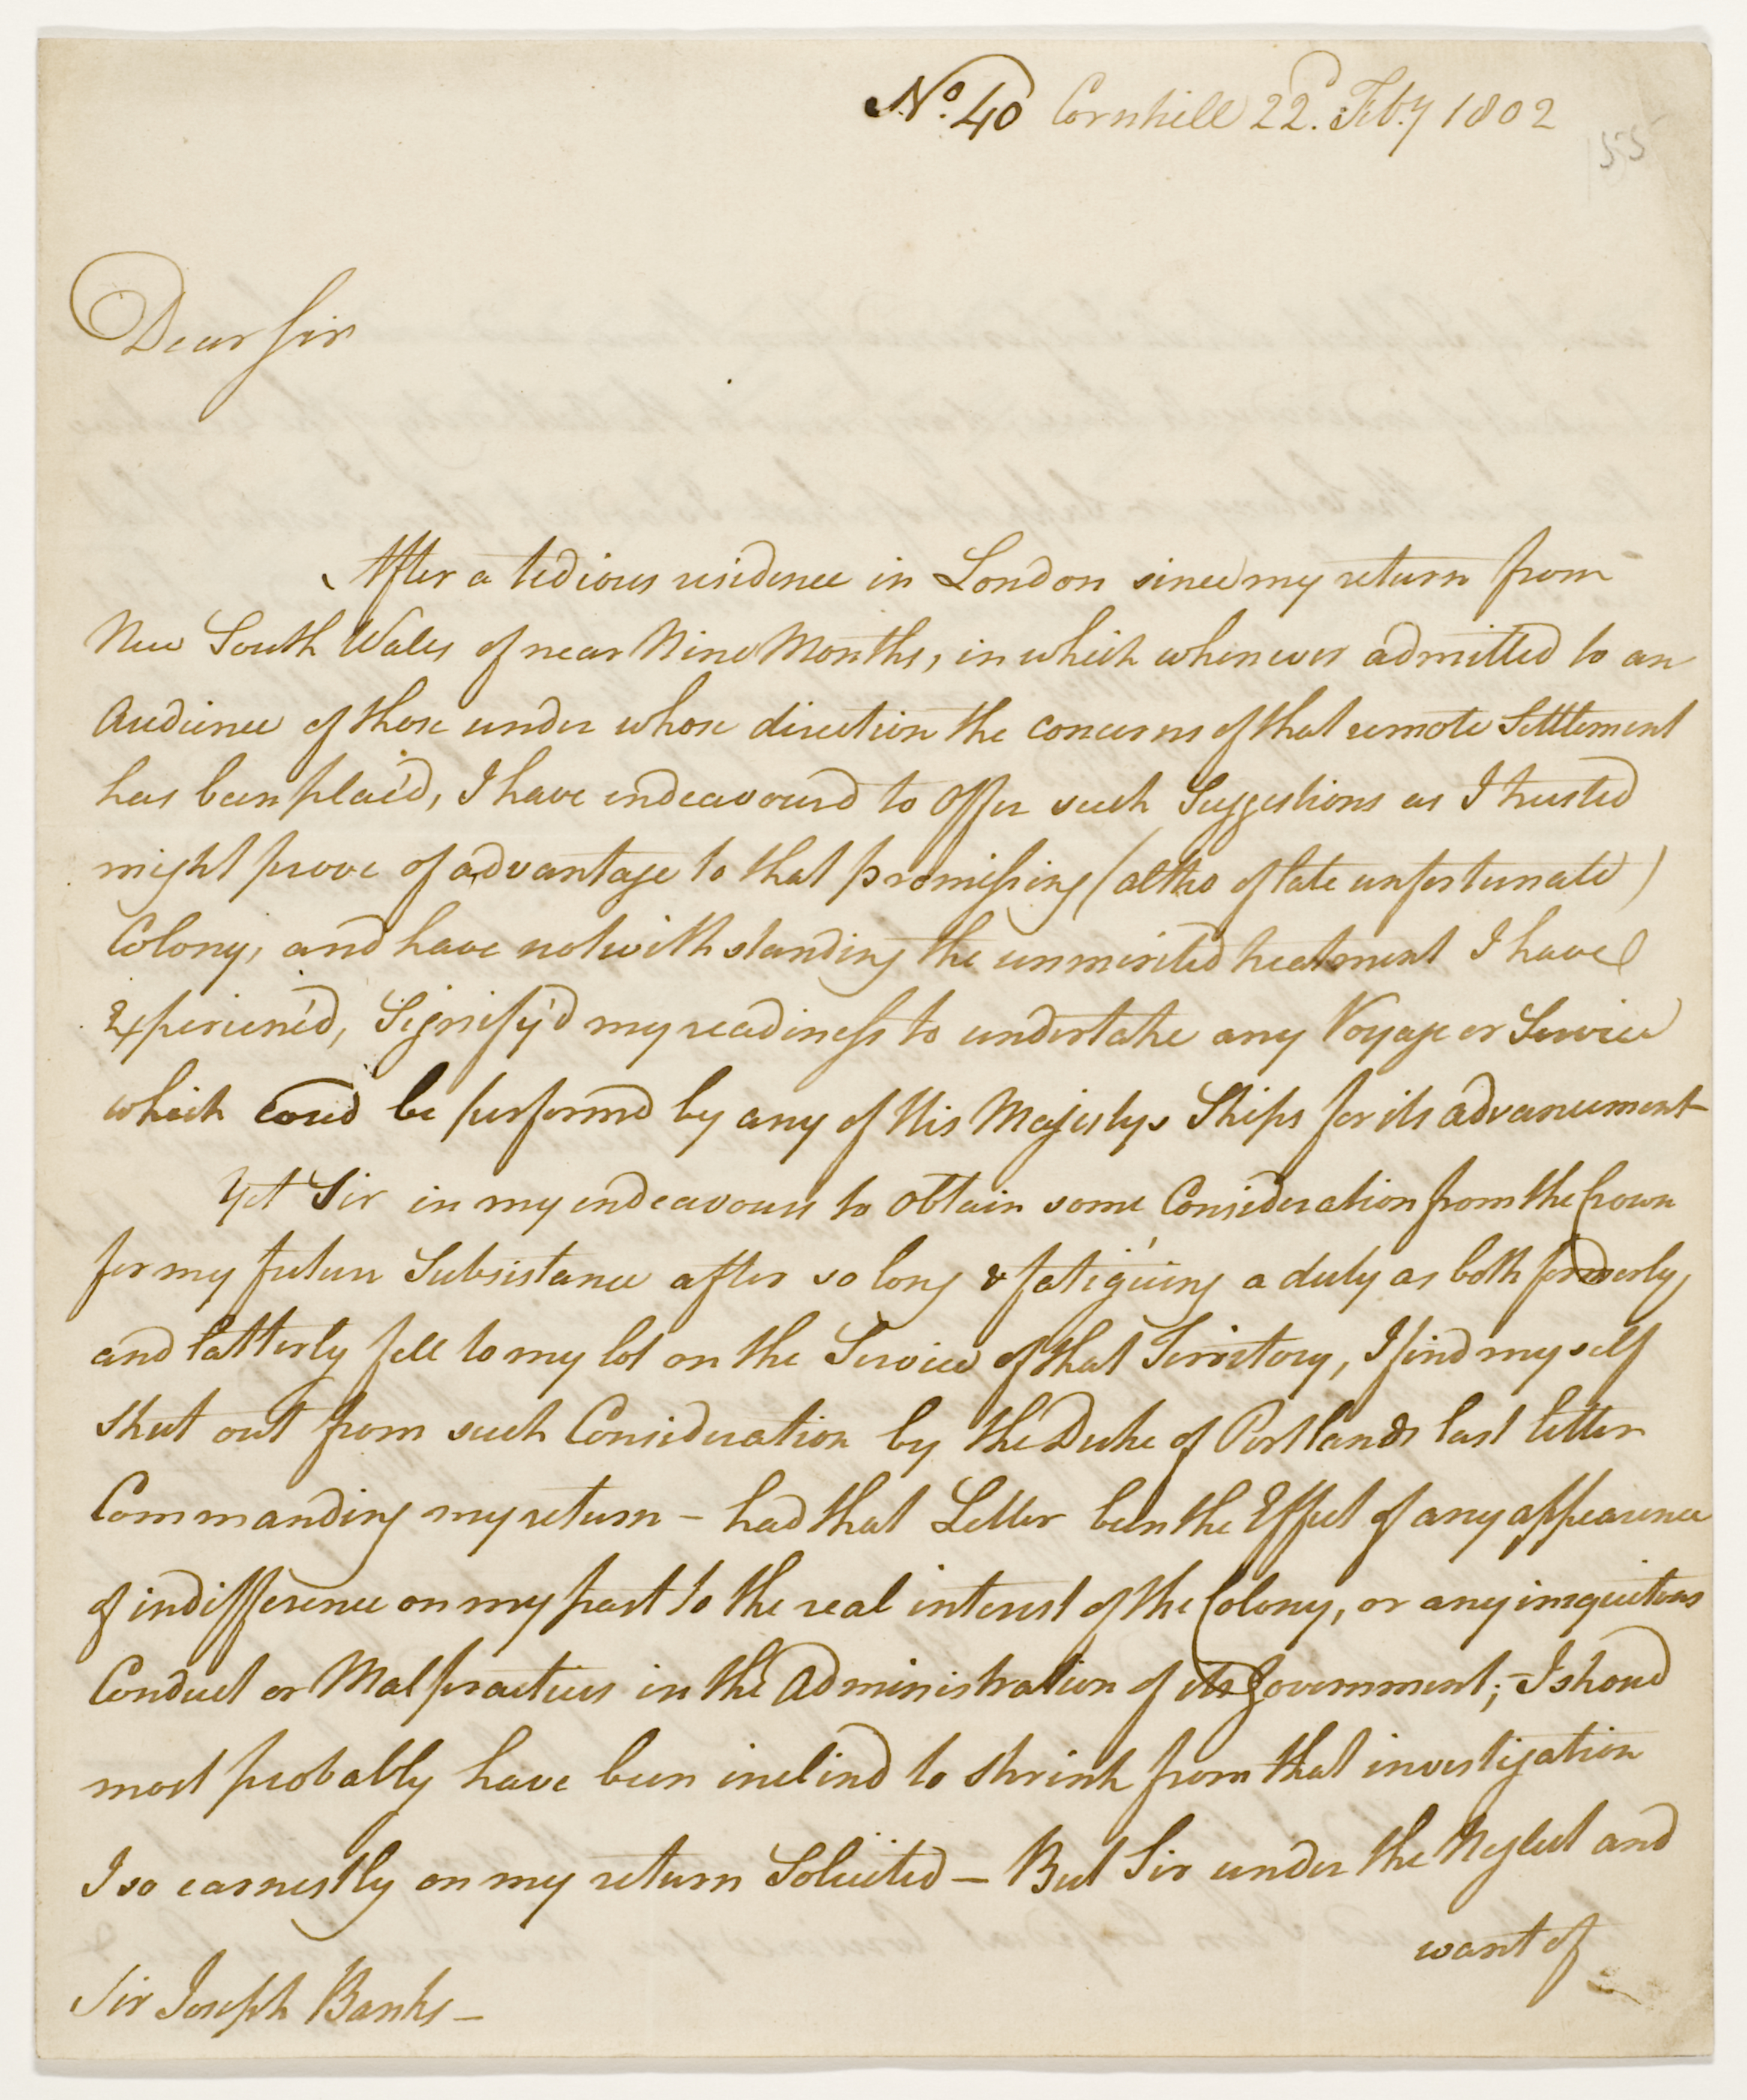 No. 40 Cornhill 22d. Feby 1802
155
Dear Sir
After a tedious residence in London since my return from
New South Wales of near Nine Months, in which whenever admitted to an
Audience of those under whose direction the concerns of that remote Settlement
has been plac'd, I have endeavourd to Offer such Suggestions as I trusted
might prove of advantage to that promissing (altho of late unfortunate)
Colony, and have notwithstanding the unmerited treatment I have
Experienc'd, Signify'd my readiness to undertake any Voyage or Service
which coud be performd by any of His Majestys Ships for its advancement
Yet Sir in my endeavours to obtain some Consideration from the Crown
for my future Subsistance after so long & fatiguing a duty as both formerly,
and latterly fell to my lot on the Service of that Territory, I find myself
Shut out from such Consideration by the Duke of Portlands last letter
Commanding my return – had that Letter been the Effect of any appearence
of indifference on my part to the real interest of the Colony, or any iniquitous
Conduct or Malpractices in the Administration of its Government; – I shoud
most probably have been inclind to shrink from that investigation
I so earnestly on my return Solicited – But Sir under the Neglect and
want of
Sir Joseph Banks –